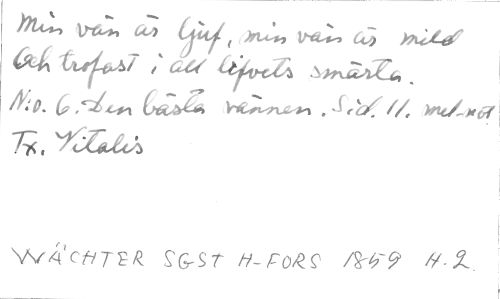 Min vän är ljuf, min vän är mild
Och trofast i all lifvets smärta.
N:o. 6. Den bästa vännen. Sid. 11. mel-not
Tx. Vitalis
WÄCHTER SGST H-FORS 1859 H.2.